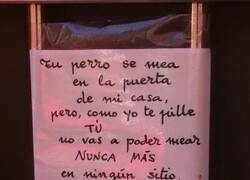 Tu perro se mea
en la puerta
de mi casa,
pero, como yo te pille
TÚ
no vas a poder mear
NUNCA MÁS
en ningún sitio